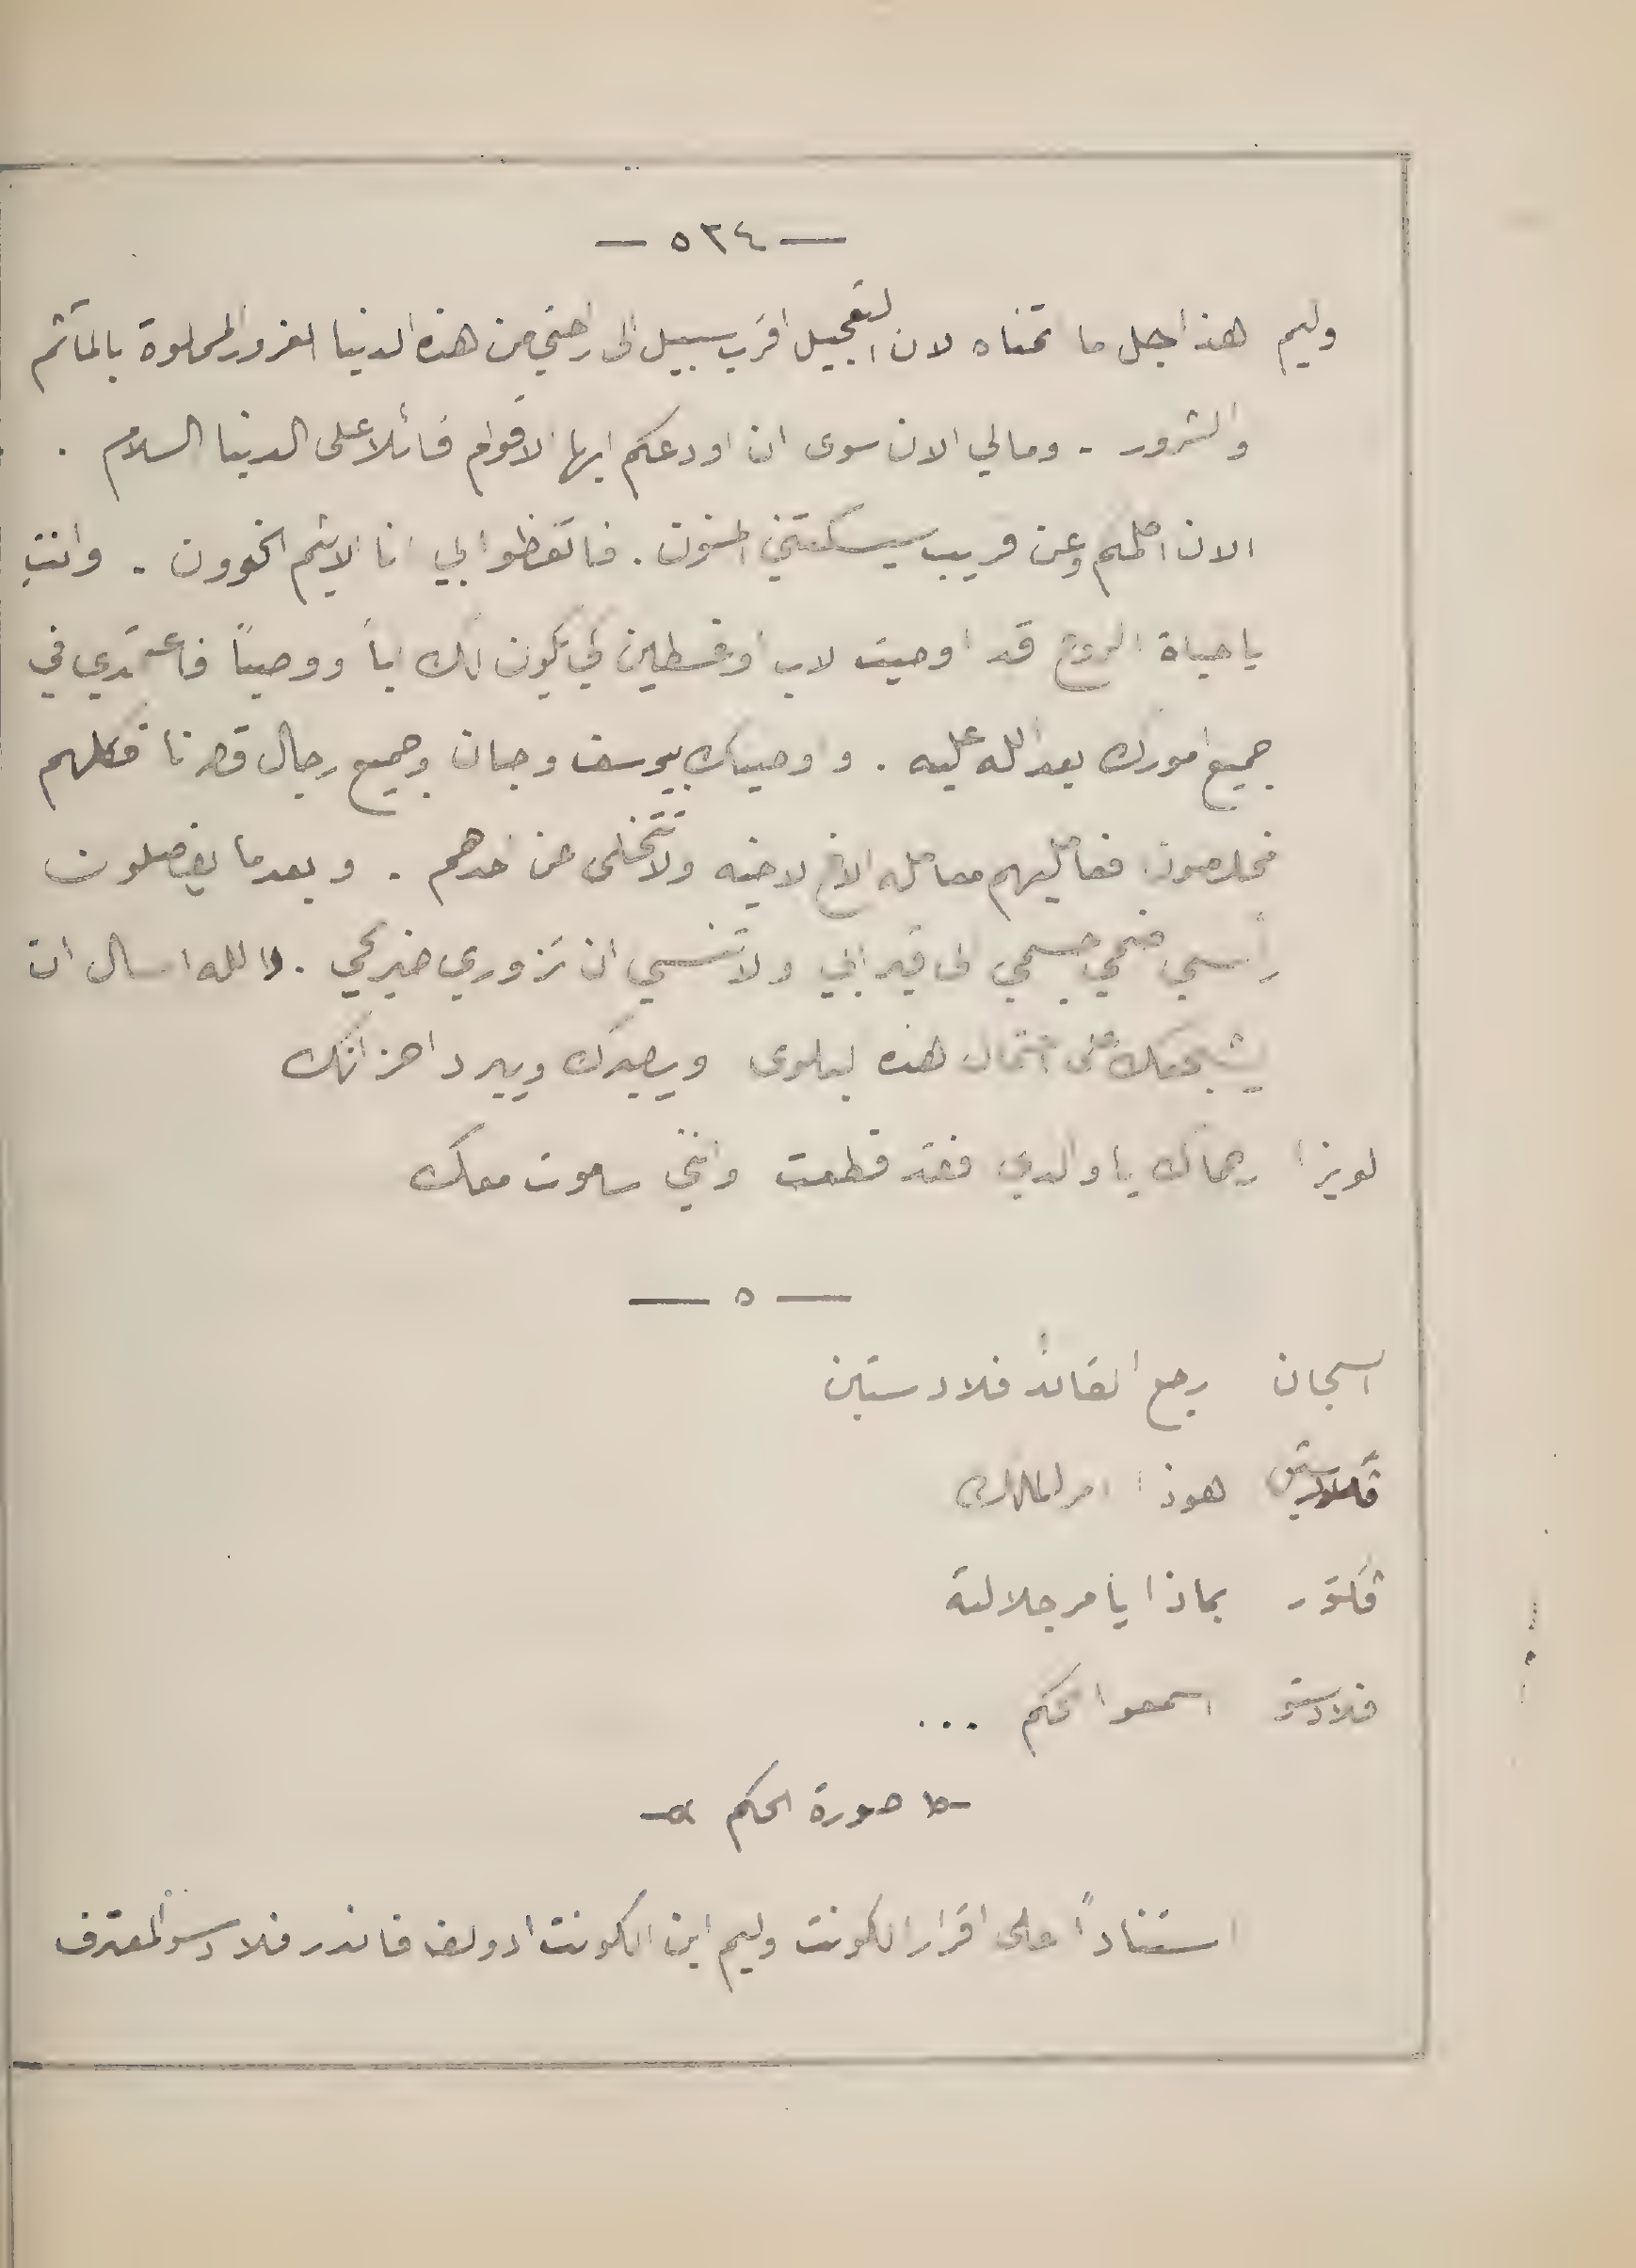 — ٥٣٤ —
وليم هذا جل ما تمناه لان التعجيل اقرب سبيل الى راحتي من هذه الدنيا الغرور المملوة بالمآثم
والشرور - ومالي الان سوى ان اودعكم ايها الاقوام قائلا على الدنيا السلام .
الان اكلمكم وعن قريب سيسكتني المنون . فاتعظوا بي انا الاثيم الخوون - وانتِ
يا حياة الروح قد اوصيت لاب اوغسطين كي يكون لك اباً ووصياً فاعتمدي في
جميع امورك بعد الله عليه . واوصيك بيوسف وجان وجميع رجال قصرنا فكلهم
مخلصون فعامليهم معامله الاخ لاخيه ولا تتخلى عن احدهم . وبعدما يفصلون
رأسي ضمي جسمي الى قبر ابي ولا تنسي ان تزوري ضريحي . والله اسال ان
يشجعك على احتمال هذه البلوى ويصبرك ويبرد احزانك
لويزا رحماك يا والدي فقد قطعت وانني ساموت معك
— ٥ —
السجان رجع القائد فلادستين
فلادستين هوذا امر الملك
فكتور بماذا يأمر جلالته
فلادستو اسمعوا الحكم ...
صورة الحكم
استناداً على اقرار الكونت وليم ابن الكونت ادولف فاندر فلادستو المعترف